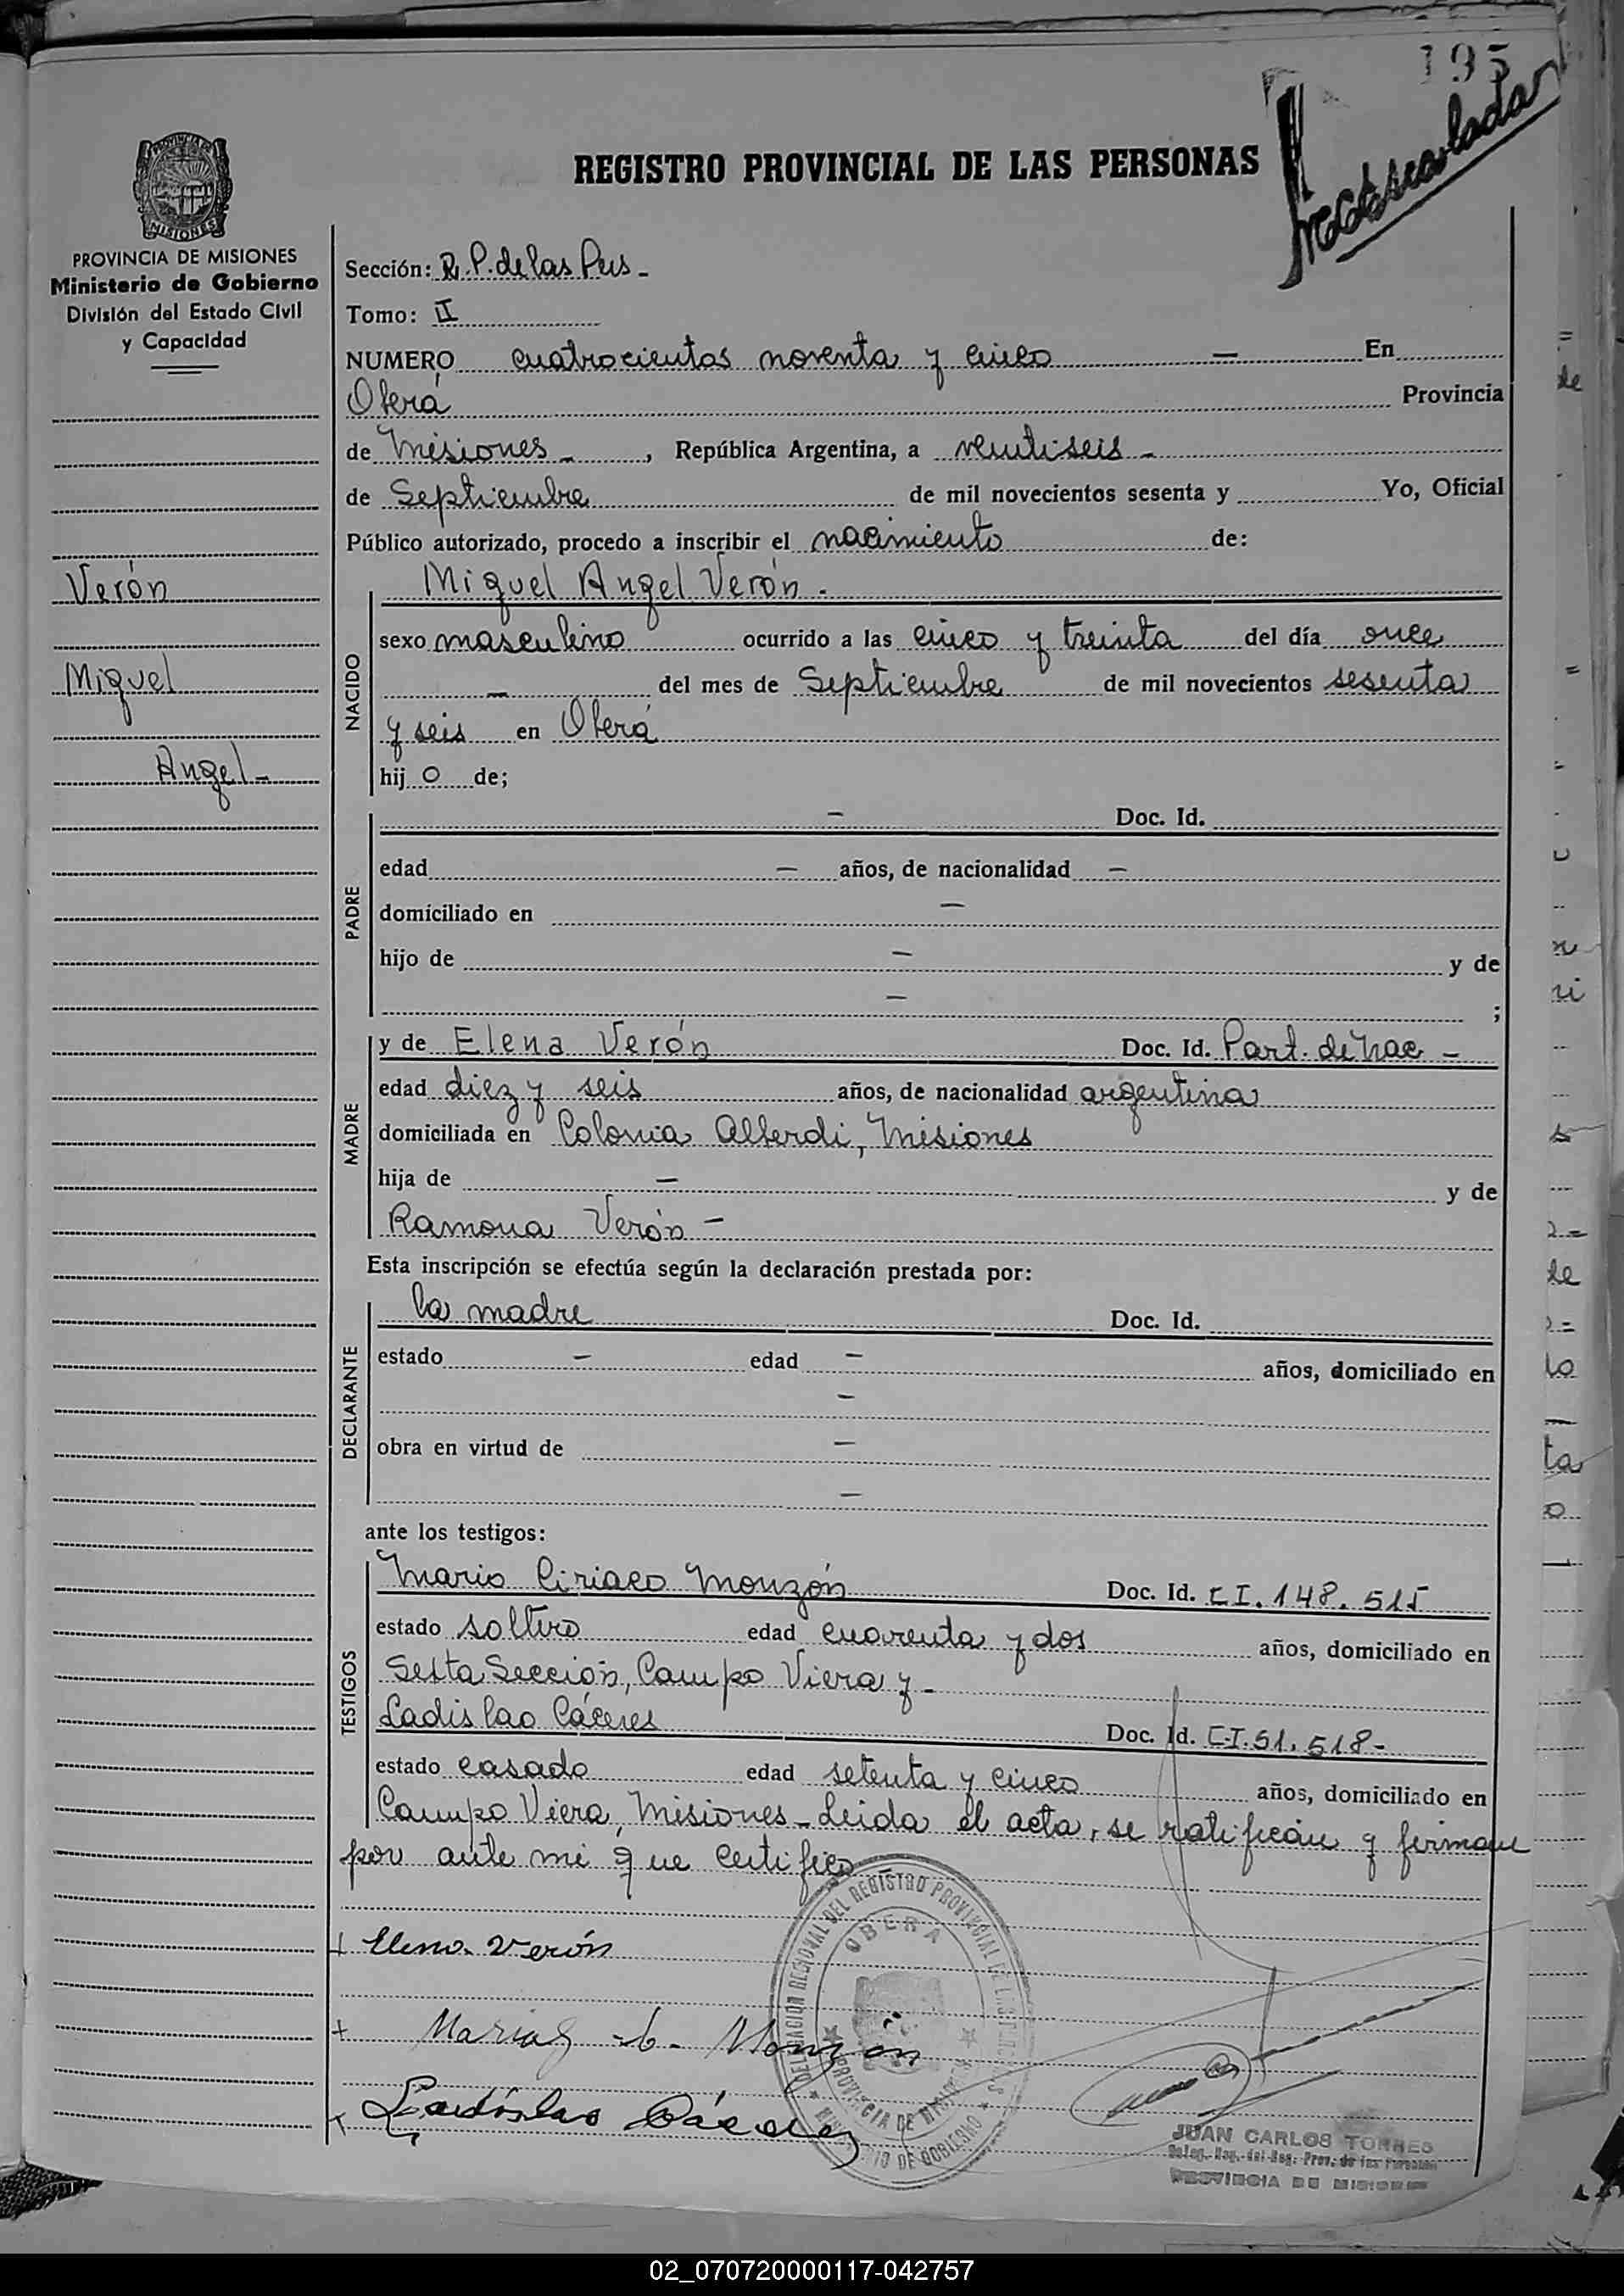 195
Inmatriculada
REGISTRO PROVINCIAL DE LAS PERSONAS
MISIONES
PROVINCIA DE MISIONES
Ministerio de Gobierno
División del Estado Civil
y Capacidad
Verón
Miguel
Angel -
Sección: R. P. de las Pers -
Tomo: II
NUMERO cuatrocientos noventa y cinco — En
Oberá Provincia
de Misiones - , República Argentina, a veintiseis -
de Septiembre de mil novecientos sesenta y Yo, Oficial
Público autorizado, procedo a inscribir el nacimiento de:
Miguel Angel Verón -
NACIDO
sexo masculino ocurrido a las cinco y treinta del día once
— del mes de Septiembre de mil novecientos sesenta
y seis en Oberá
hij o de;
PADRE
— Doc. Id.
edad — años, de nacionalidad —
domiciliado en —
hijo de — y de
— ;
MADRE
y de Elena Verón Doc. Id. Part. de nac -
edad diez y seis años, de nacionalidad argentina
domiciliada en Colonia Alberdi, Misiones
hija de — y de
Ramona Verón -
Esta inscripción se efectúa según la declaración prestada por:
DECLARANTE
la madre Doc. Id.
estado — edad — años, domiciliado en
—
obra en virtud de —
—
ante los testigos:
TESTIGOS
Mario Ciriaco Monzón Doc. Id. C I. 148. 515
estado soltero edad cuarenta y dos años, domiciliado en
Sexta Sección, Campo Viera y -
Ladislao Cáceres Doc. Id. C.I. 51. 518 -
estado casado edad setenta y cinco años, domiciliado en
Campo Viera, Misiones - Leida el acta, se ratifican y firman
por ante mi que certifico
+ Elena Verón
+ Mario C. Monzón
+ Ladislao Cáceres
DELEGACION REGIONAL DEL REGISTRO PROVINCIAL DE LAS PERSONAS
OBERA
PROVINCIA DE MISIONES
MINISTERIO DE GOBIERNO
JUAN CARLOS TORRES
Deleg. Reg. del Reg. Prov. de las Personas
PROVINCIA DE MISIONES
02_070720000117-042757